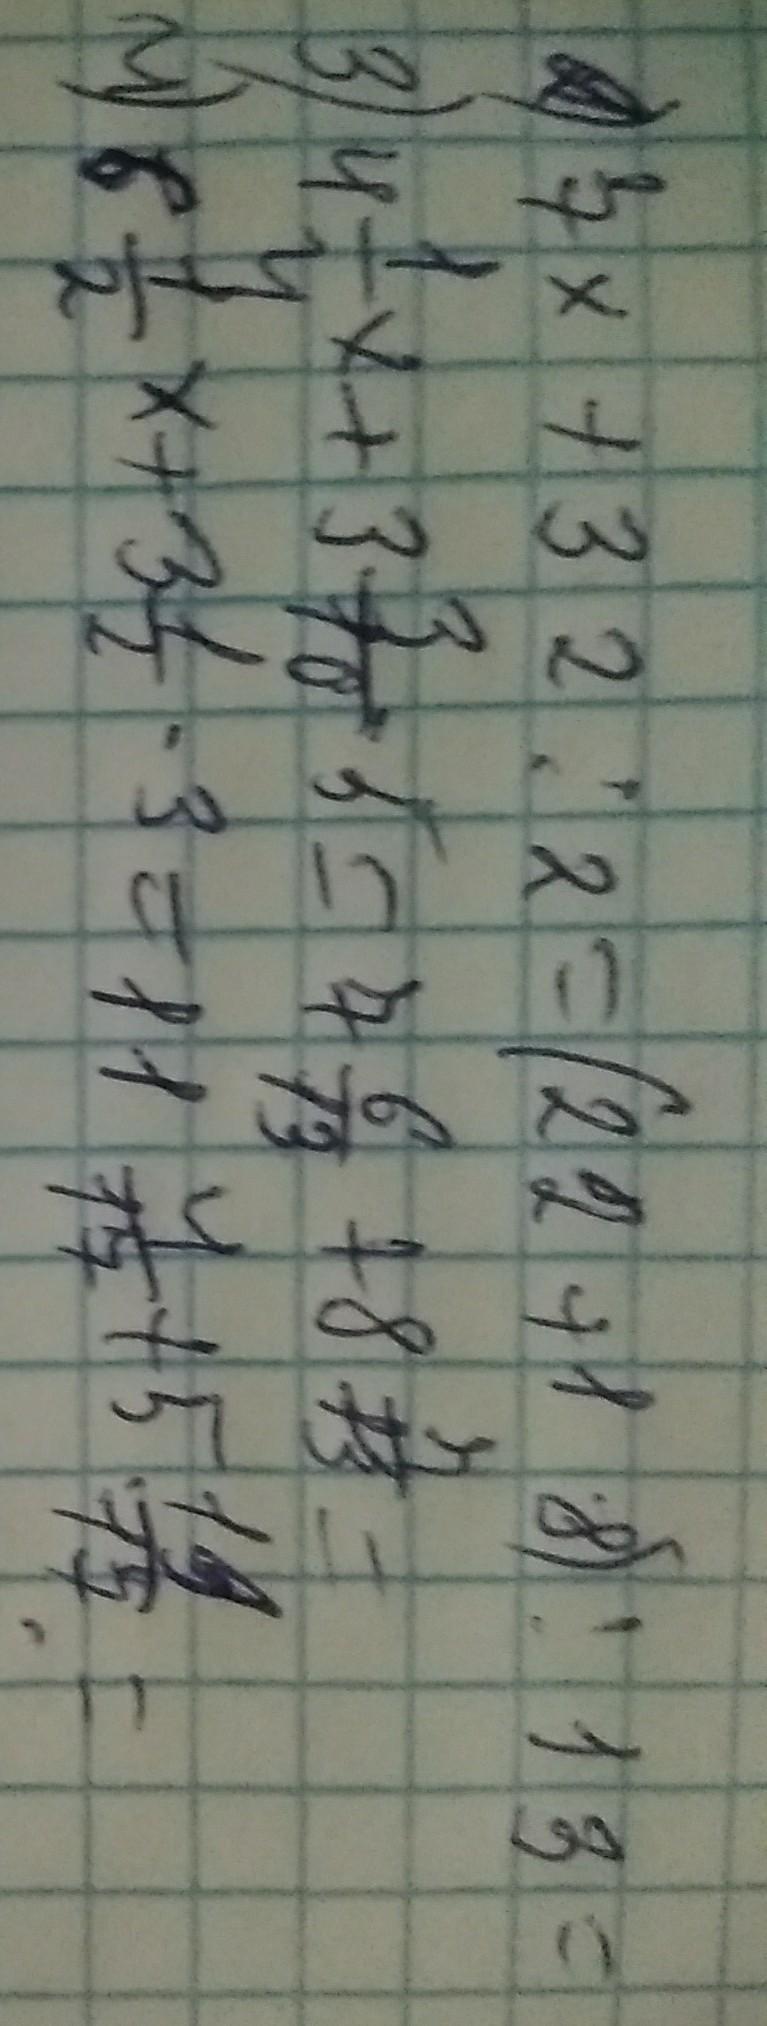 7x + 32 : 2 = (22 + 18) : 13 =
3) 4 1/4 x + 3 3/10 · 5 = 7 6/13 + 8 7/13 =
4) 6 1/2 x + 3 1/2 · 3 = 11 4/15 + 5 /15 =